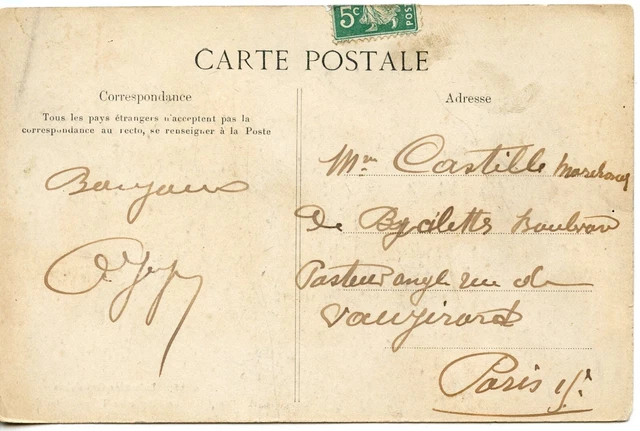 5c
POS
CARTE POSTALE
Correspondance
Tous les pays étrangers n'acceptent pas la
correspondance au recto, se renseigner à la Poste
Bonjour
Adresse
Mr Castille Marchand
De Bycilettes Boulevard
Pasteur angle rue de
Vaugirard
Paris 15e